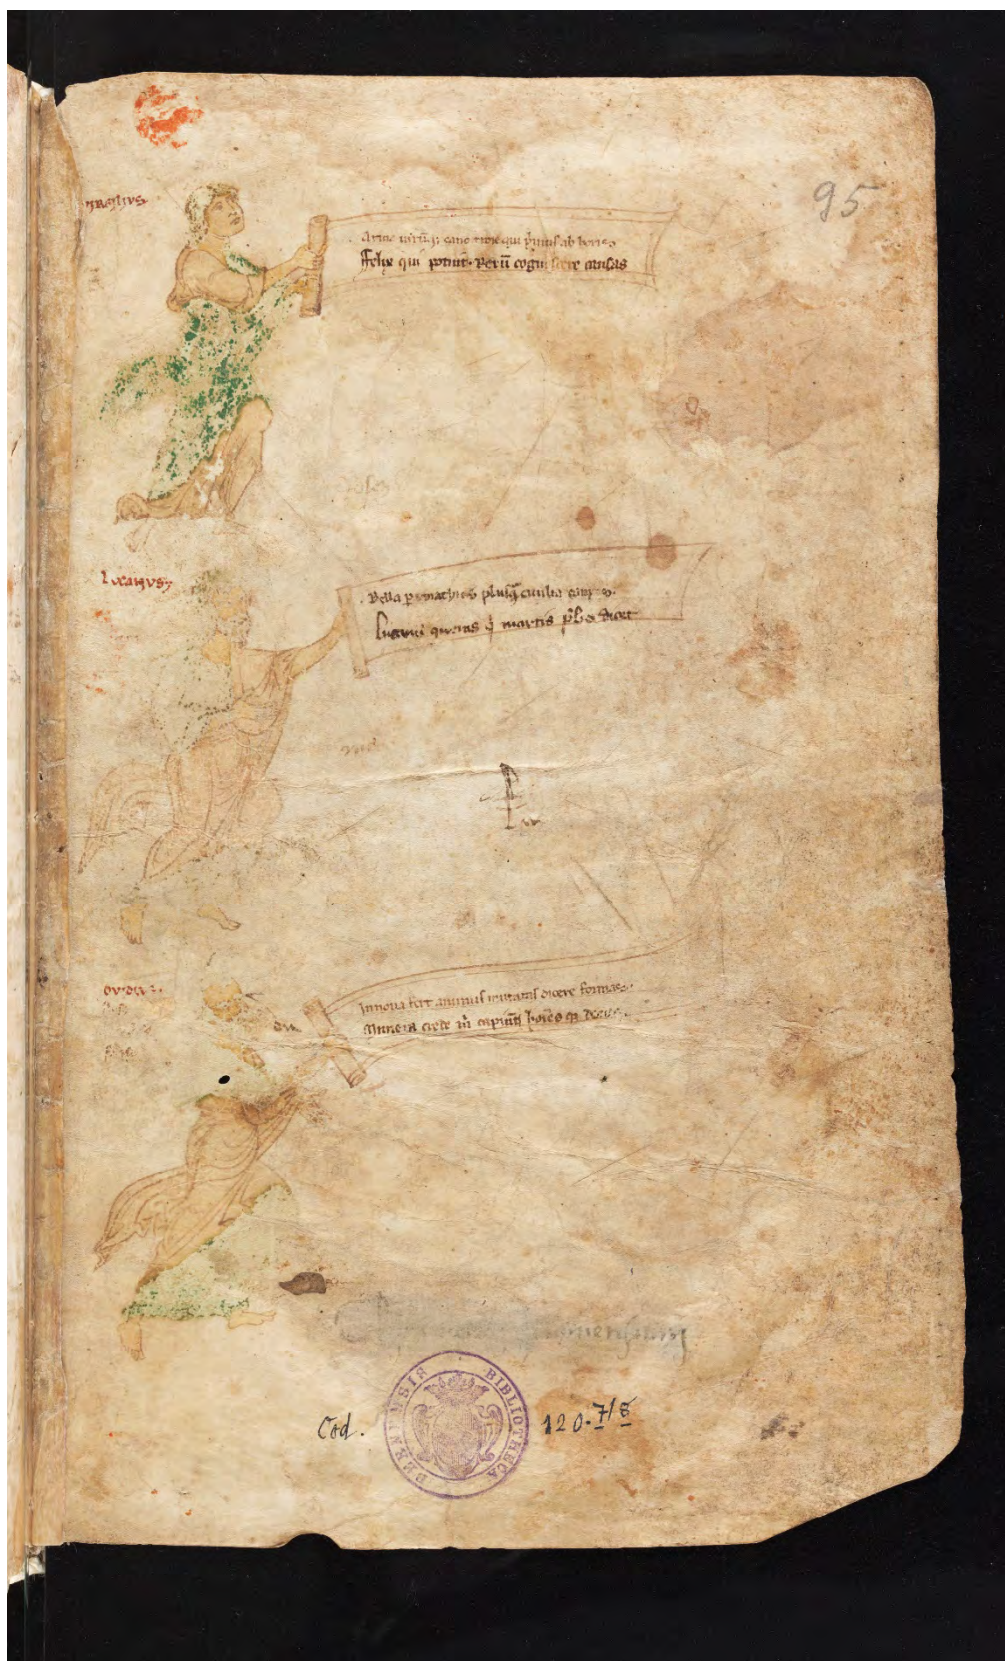 95
virgilius
Arma virūq; cano troie qui p̄mus ab horis
Felix qui potuit. Rerū cognoscere causas
Lucanus
Bella p emathios plusq̄ civilia campos.
lucanū queras q̄ martis plia dicet
ovidiꝰ
In nova fert animus mutatas dicere formas.
Munera crede m̄ capiunt hoīes q; deos.
Cod.
BIBLIOTHECA BERNENSIS
120.7/8